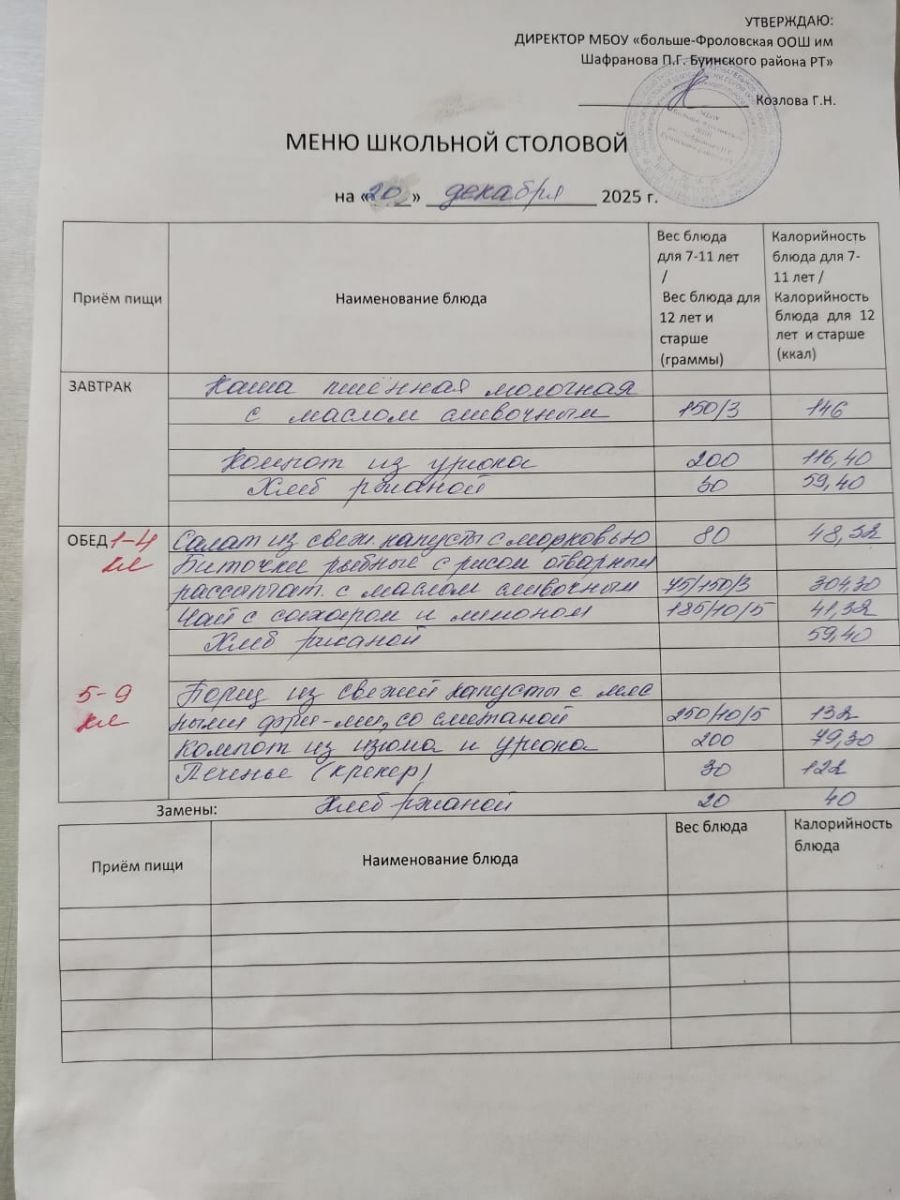 УТВЕРЖДАЮ:
ДИРЕКТОР МБОУ «больше-Фроловская ООШ им
Шафранова П.Г. Буинского района РТ»
Козлова Г.Н.
МЕНЮ ШКОЛЬНОЙ СТОЛОВОЙ
на «20» декабря 2025 г.
Приём пищи Наименование блюда Вес блюда для 7-11 лет / Вес блюда для 12 лет и старше (граммы) Калорийность блюда для 7-11 лет / Калорийность блюда для 12 лет и старше (ккал)
ЗАВТРАК Каша пшённая молочная
с маслом сливочным 150/3 146
Компот из урюка 200 116,40
Хлеб ржаной 30 59,40
ОБЕД 1-4 Салат из свеж. капусты с морковью 80 48,32
кл Биточки рыбные с рисом отварным
рассыпчат. с маслом сливочным 75/150/3 304,30
Чай с сахаром и лимоном 185/10/5 41,32
Хлеб ржаной 59,40
5-9 Борщ из свежей капусты с мяс
кл ными фри-ми, со сметаной 250/10/5 132
Компот из изюма и урюка 200 79,30
Печенье (крекер) 30 122
Замены: Хлеб ржаной 20 40
Приём пищи Наименование блюда Вес блюда Калорийность блюда